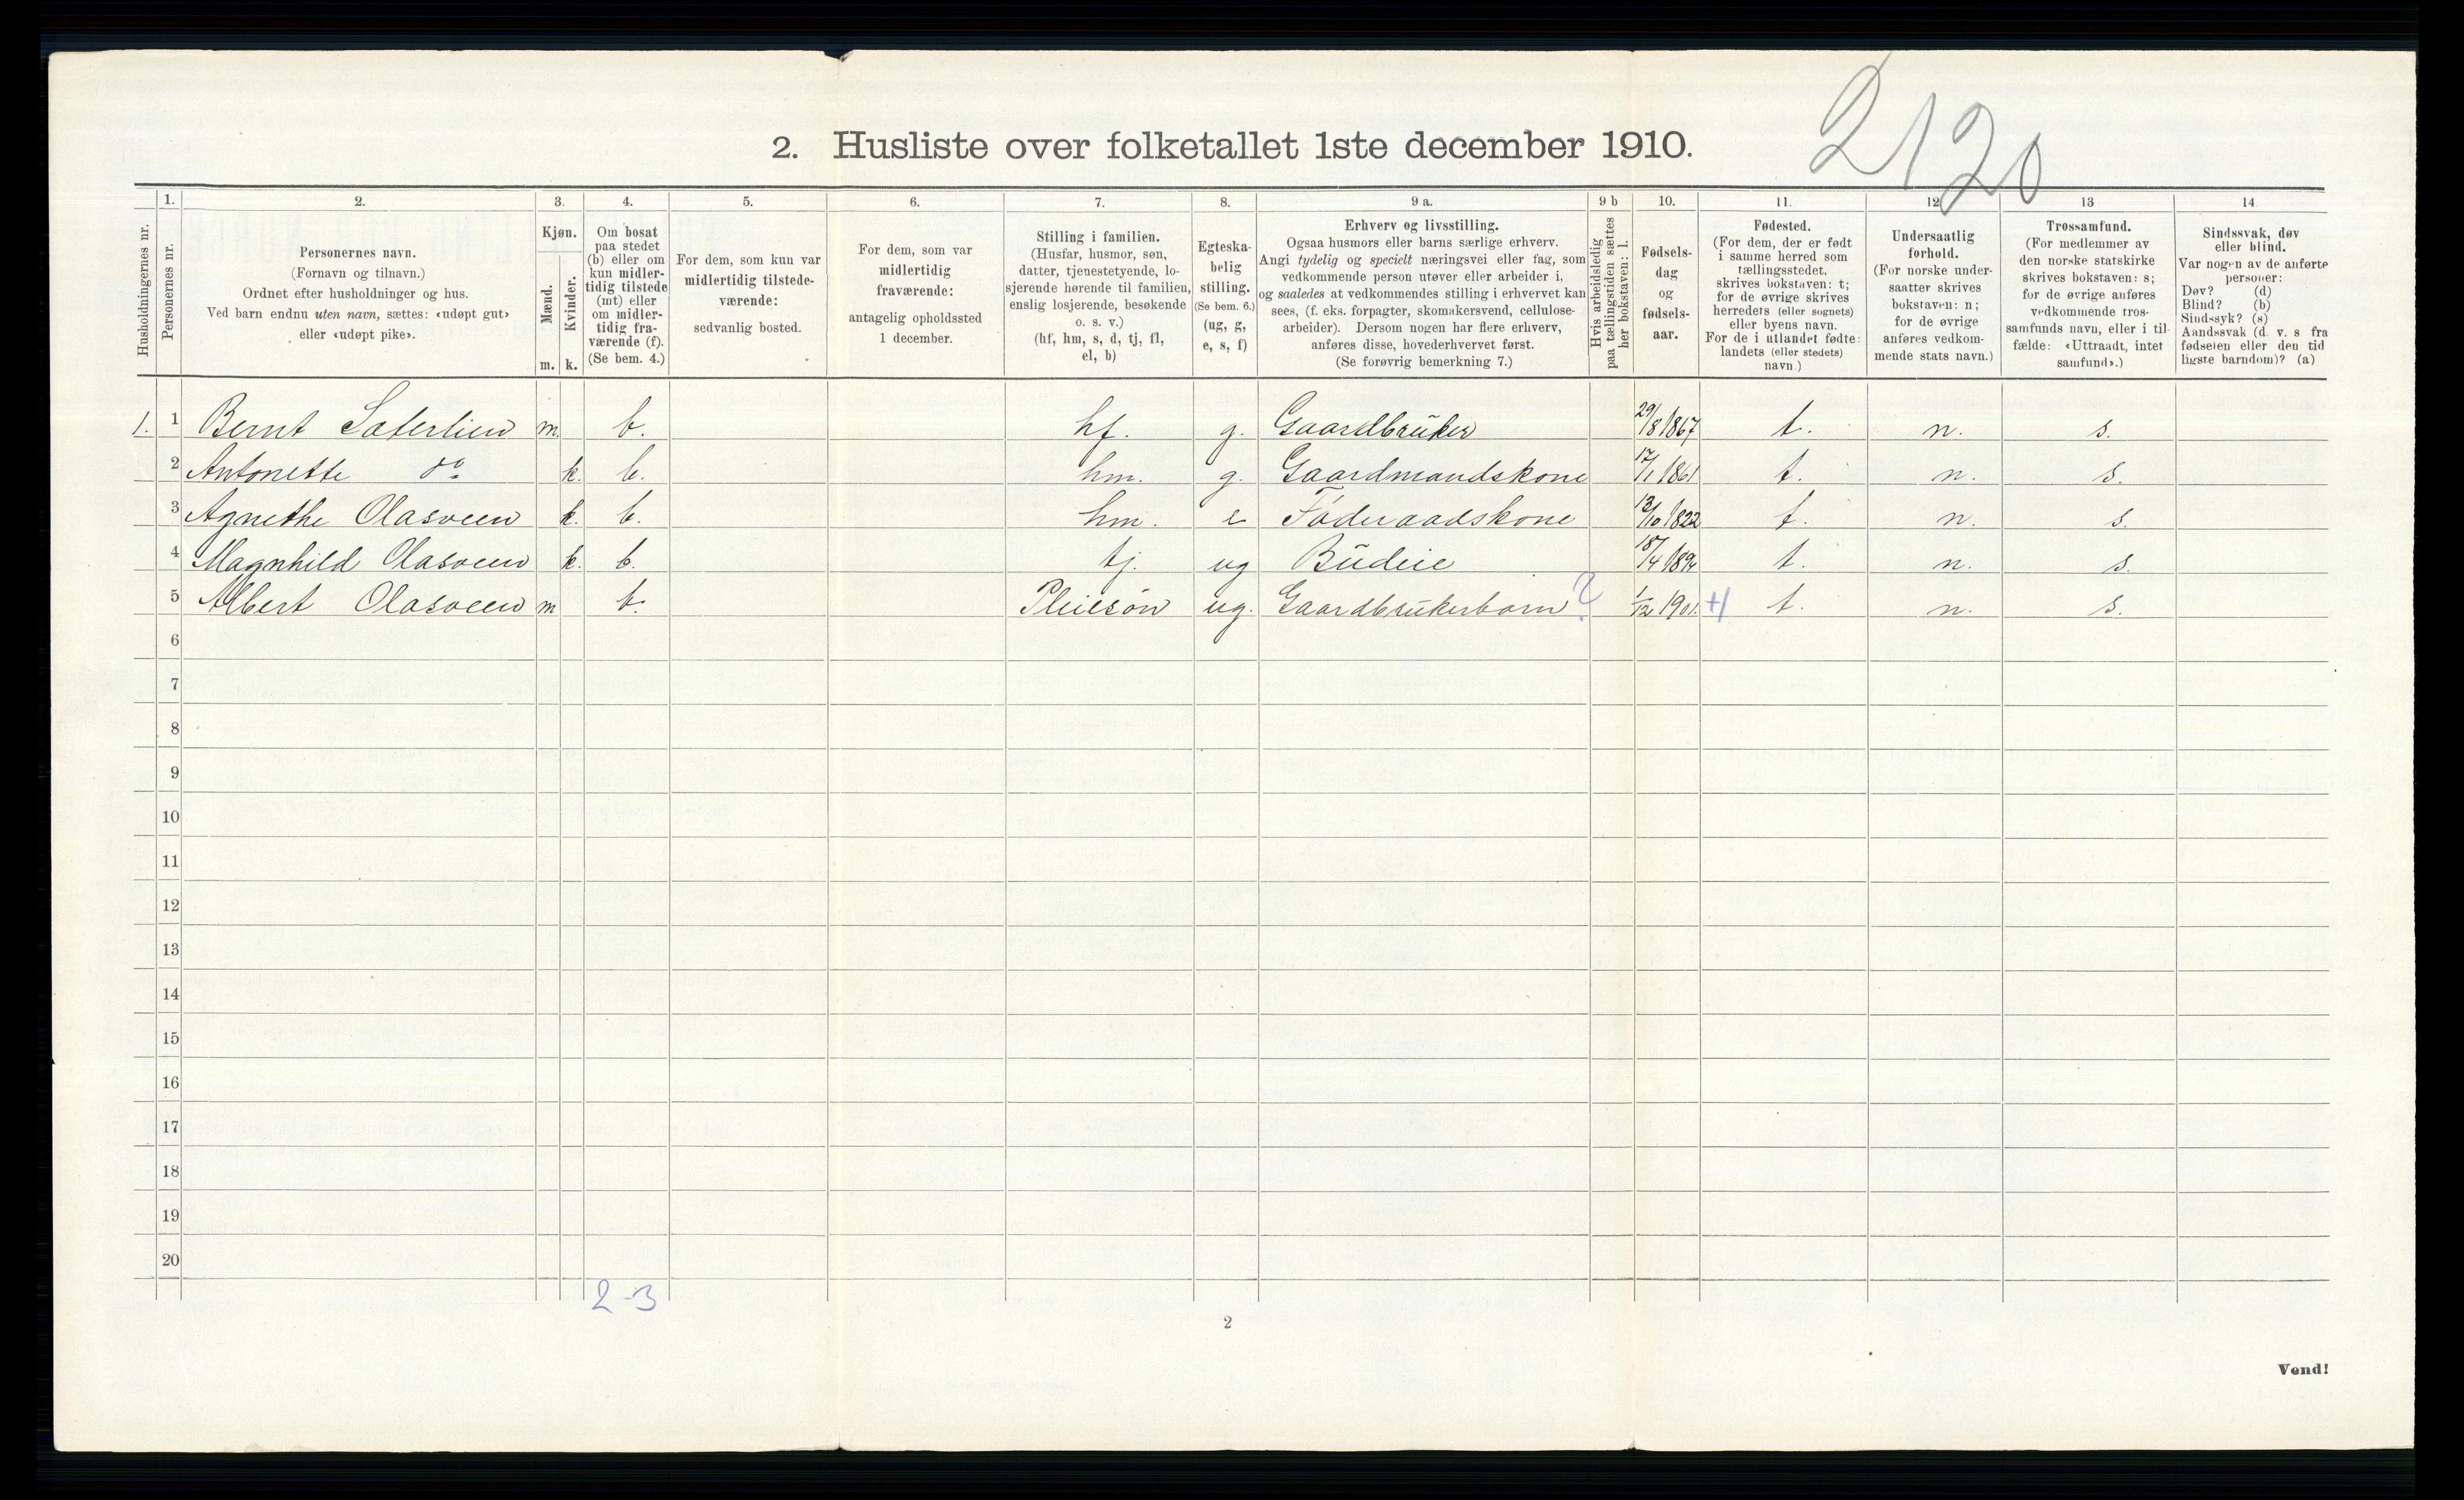 2120
2. Husliste over folketallet 1ste december 1910.
Husholdningernes nr.
1. Personernes nr.
2. Personernes navn.
(Fornavn og tilnavn.)
Ordnet efter husholdninger og hus.
Ved barn endnu uten navn, sættes: «udøpt gut»
eller «udøpt pike».
3. Kjøn.
Mænd. m.
Kvinder. k.
4. Om bosat
paa stedet
(b) eller om
kun midler-
tidig tilstede
(mt) eller
om midler-
tidig fra-
værende (f).
(Se bem. 4.)
5. For dem, som kun var
midlertidig tilstede-
værende:
sedvanlig bosted.
6. For dem, som var
midlertidig
fraværende:
antagelig opholdssted
1 december.
7. Stilling i familien.
(Husfar, husmor, søn,
datter, tjenestetyende, lo-
sjerende hørende til familien,
enslig losjerende, besøkende
o. s. v.)
(hf, hm, s, d, tj, fl,
el, b)
8. Egteska-
belig
stilling.
(Se bem. 6.)
(ug, g,
e, s, f)
9 a. Erhverv og livsstilling.
Ogsaa husmors eller barns særlige erhverv.
Angi tydelig og specielt næringsvei eller fag, som
vedkommende person utøver eller arbeider i,
og saaledes at vedkommendes stilling i erhvervet kan
sees, (f. eks. forpagter, skomakersvend, cellulose-
arbeider). Dersom nogen har flere erhverv,
anføres disse, hovederhvervet først.
(Se forøvrig bemerkning 7.)
9 b Hvis arbeidsledig
paa tællingstiden sættes
her bokstaven: l.
10. Fødsels-
dag
og
fødsels-
aar.
11. Fødested.
(For dem, der er født
i samme herred som
tællingsstedet,
skrives bokstaven: t;
for de øvrige skrives
herredets (eller sognets)
eller byens navn.
For de i utlandet fødte:
landets (eller stedets)
navn.)
12 Undersaatlig
forhold.
(For norske under-
saatter skrives
bokstaven: n;
for de øvrige
anføres vedkom-
mende stats navn.)
13 Trossamfund.
(For medlemmer av
den norske statskirke
skrives bokstaven: s;
for de øvrige anføres
vedkommende tros-
samfunds navn, eller i til-
fælde: «Uttraadt, intet
samfund».)
14 Sindssvak, døv
eller blind.
Var nogen av de anførte
personer:
Døv? (d)
Blind? (b)
Sindssyk? (s)
Aandssvak (d. v. s. fra
fødselen eller den tid
ligste barndom)? (a)
1. 1 Bernt Sæterlien m. b. hf. g. Gaardbruker 29/8 1867 t. n. s.
2 Antonette do k. b. hm. g. Gaardmandskone 17/1 1861 t. n. s.
3 Agnethe Olasveen k. b. hm. e Føderaadskone 12/10 1822 t. n. s.
4 Magnhild Olasveen k. b. tj. ug Budeie 18/4 1894 t. n. s.
5 Albert Olasveen m b. Pleiesøn ug. Gaardbrukerbarn ? 1/12 1901. +1 t. n. s.
6
7
8
9
10
11
12
13
14
15
16
17
18
19
20
2-3
2
Vend!